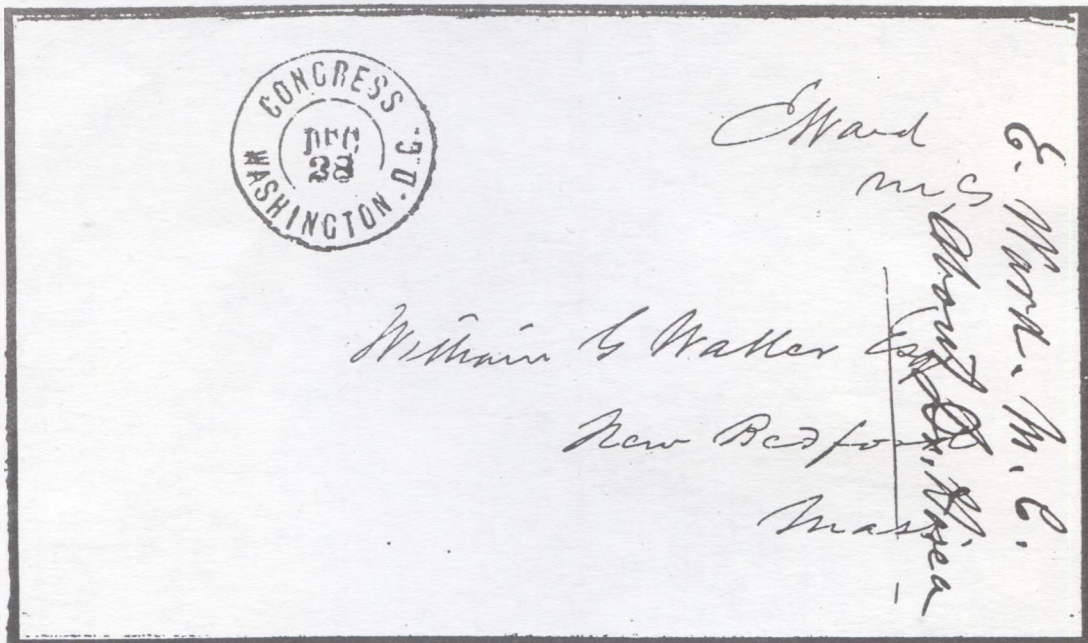 CONGRESS
DEC
28
WASHINGTON. D.C.
E Ward
M C
William G Waller Esq
New Bedford
Mass
E. Ward. M. C.
About Dr. Hosea